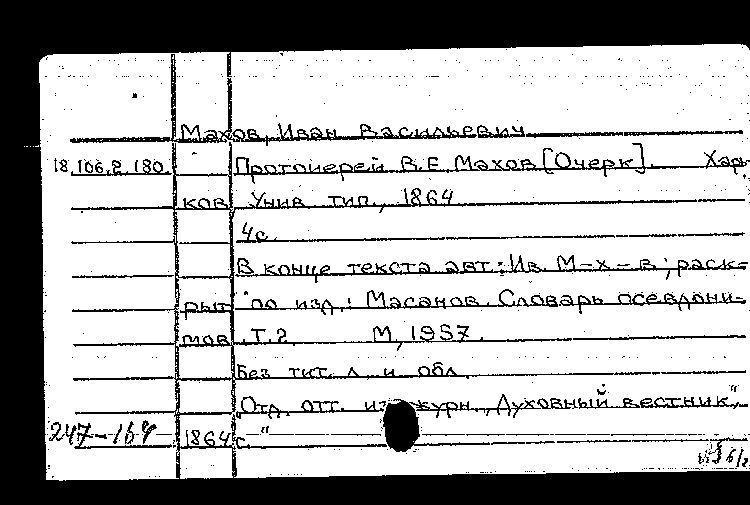 Махов, Иван Васильевич.
18.106.2.180. Протоиерей В.Е. Махов [Очерк]. Харь-
ков Унив. тип., 1864
4с.
В конце текста авт.: Ив. М-х-в; раск-
рыт по изд.: Масанов. Словарь псевдони-
мов. Т.2. М, 1957.
Без тит. л. и обл.
"Отд. отт. из журн. "Духовный вестник",
247-164 1864 г."